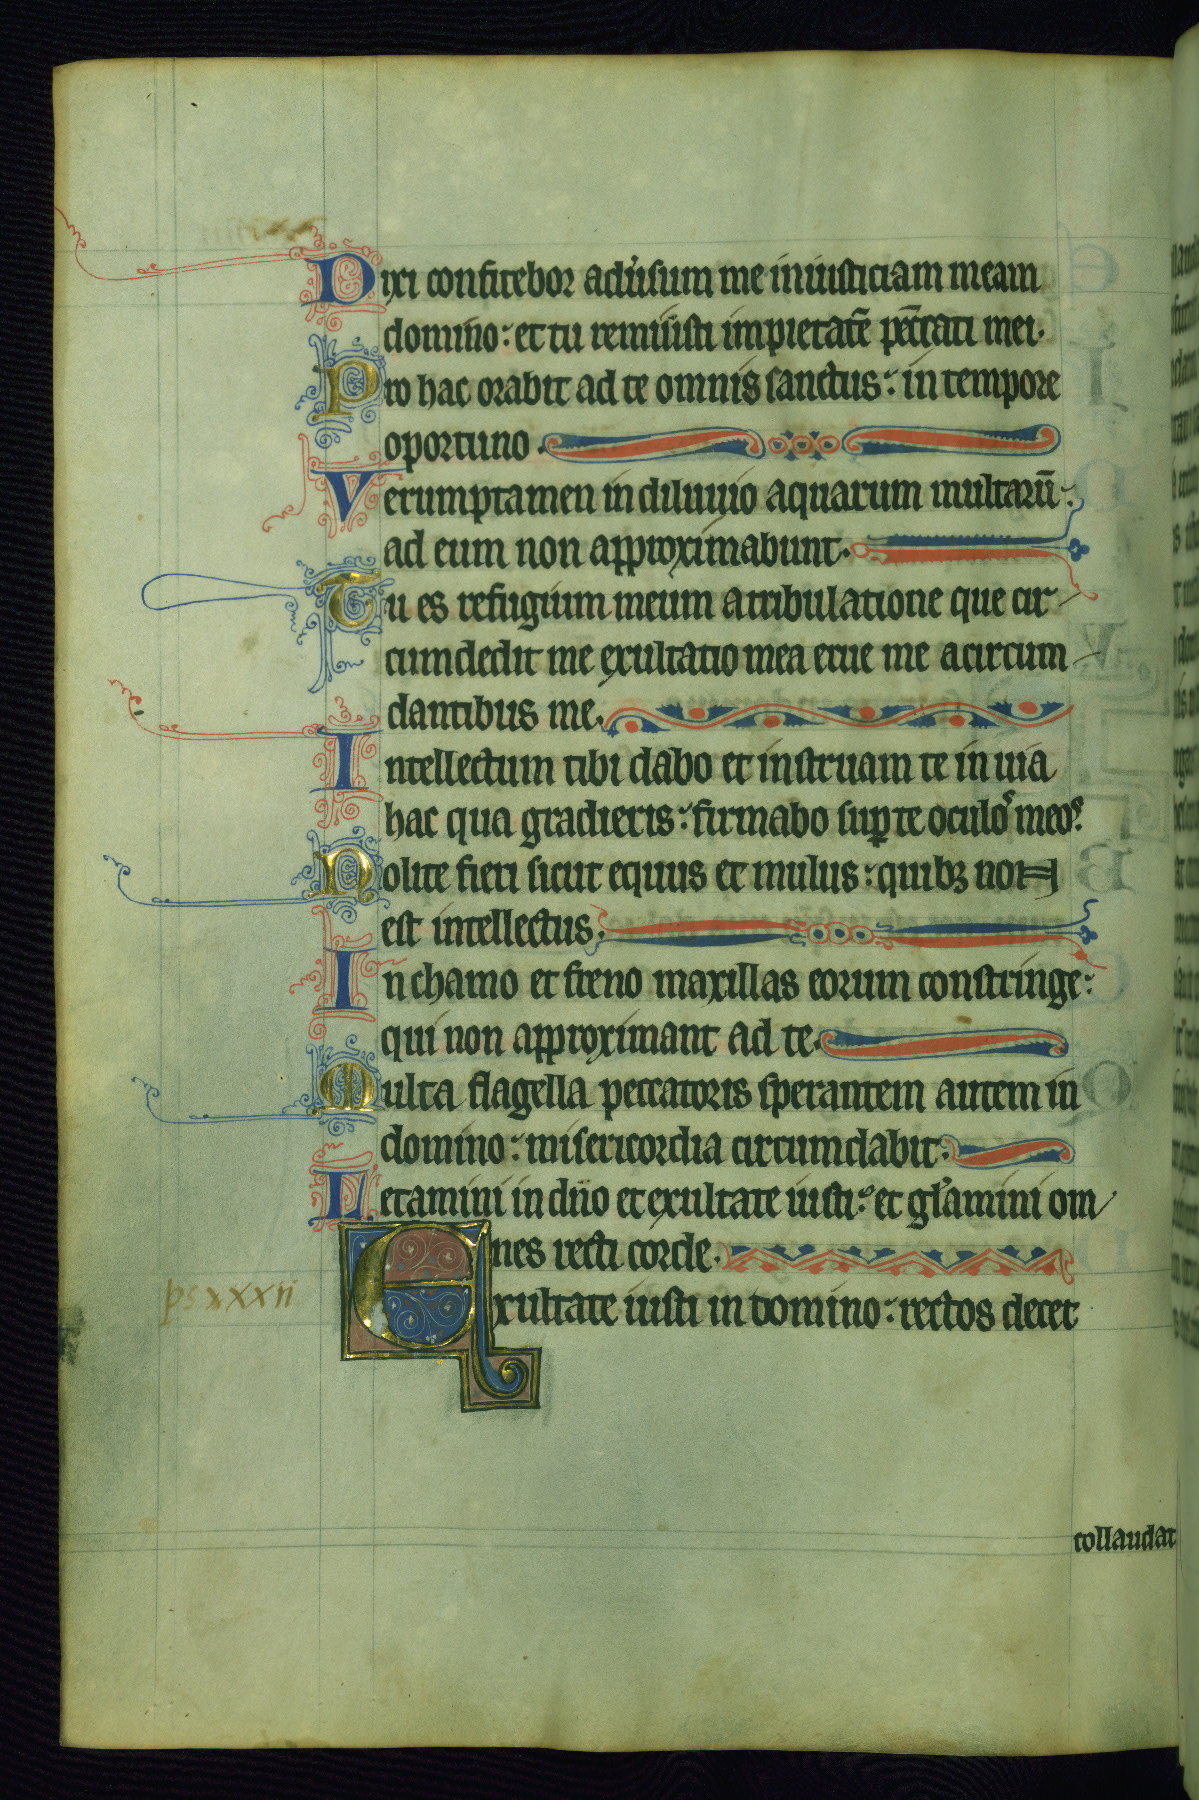 Dixi confitebor adu̾sum me iniusticiam meam
domino : et tu remisisti impietatē pc̄cati mei.
Pro hac orabit ad te omnis sanctus : in tempore
oportuno.
Verumptamen in diluuio aquarum multarū :
ad eum non approximabunt.
Tu es refugium meum a tribulatione que cir
cumdedit me exultatio mea erue me a circum
dantibus me.
Intellectum tibi dabo et instruam te in uia
hac qua gradieris : firmabo suꝑ te oculoˢ meoˢ.
Nolite fieri sicut equus et mulus : quibꝫ non
est intellectus.
In chamo et freno maxillas eorum constringe :
qui non approximant ad te.
Multa flagella peccatoris sperantem autem in
domino : misericordia circumdabit.
Letamini in dn̄o et exultate iusti : et gl̾amini om
nes recti corde.
ps xxxii
Exultate iusti in domino : rectos decet
collaudat